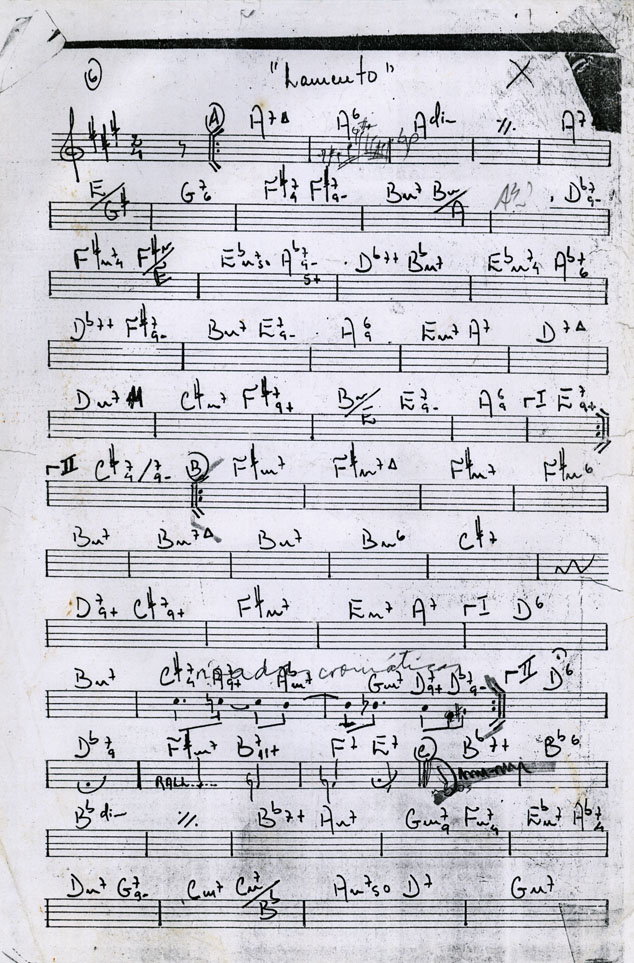 6 "Lamento" X
A A7Δ A6 Adi- ٪ A7
E/G# G7/6 F#7/4 F#7/9- Bm7 Bm/A Db7/9-
F#m7/4 F#m/E Ebm7 5o Ab7/9- 5+ Db7+ Bbm7 Ebm7/4 Ab7/6
Db7+ F#7/9- Bm7 E7/9- A6/9 Em7 A7 D7Δ
Dm7 C#m7 F#7/9+ Bm/E E7/9- A6/9 I E7/9+
II C#7/4/7/9- B F#m7 F#m7Δ F#m7 F#m6
Bm7 Bm7Δ Bm7 Bm6 C#7
D7/9+ C#7/9+ F#m7 Em7 A7 I D6
cromáticas
Bm7 C#7/4 Abm7 Gm7 D7/9+ Db7/9- II D6
Db7/9 F#m7 B7/11+ F7 E7 C Bb7+ Bb6
RALL......
Bbdi- ٪ Bb7+ Am7 Gm7/9 Fm7/4 Ebm7 Ab7/4
Dm7 G7/9- Cm7 Cm7/Bb Am7 5o D7 Gm7